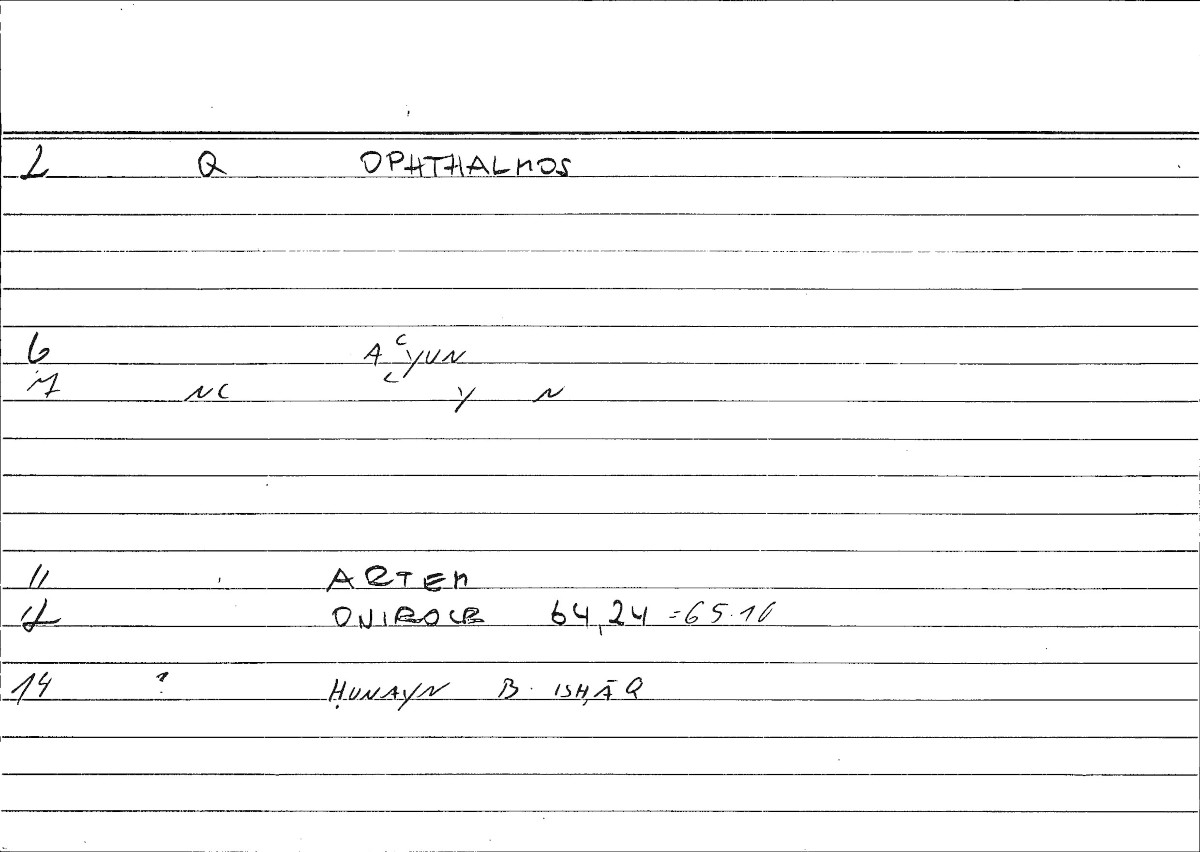 2 Q OPHTHALMOS
6 AʿYUN
7 NC ʿ Y N
11 ARTEM
12 ONIROCR 64,24 =65.10
14 ? ḤUNAYN B. ISḤĀQ